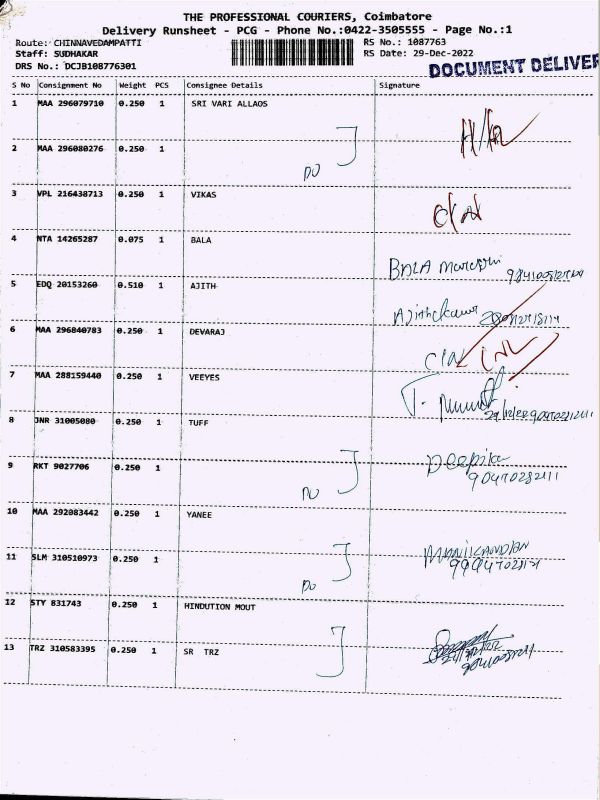 THE PROFESSIONAL COURIERS, Coimbatore
Delivery Runsheet - PCG - Phone No.:0422-3505555 - Page No.:1
Route: CHINNAVEDAMPATTI RS No.: 1087763
Staff: SUDHAKAR RS Date: 29-Dec-2022
DRS No.: DCJB108776301 DOCUMENT DELIVER
S No Consignment No Weight PCS Consignee Details Signature
1 MAA 296079710 0.250 1 SRI VARI ALLAOS
2 MAA 296080276 0.250 1
DO
3 VPL 216438713 0.250 1 VIKAS
4 NTA 14265287 0.075 1 BALA
BALA
5 EDQ 20153260 0.510 1 AJITH
6 MAA 296840783 0.250 1 DEVARAJ
7 MAA 288159440 0.250 1 VEEYES
8 JNR 31005080 0.250 1 TUFF
Deepika
9 RKT 9027706 0.250 1
9047028211
DO
10 MAA 292083442 0.250 1 YANEE
MANIKANDAN
11 SLM 310510973 0.250 1
DO
12 STY 831743 0.250 1 HINDUTION MOUT
13 TRZ 310583395 0.250 1 SR TRZ